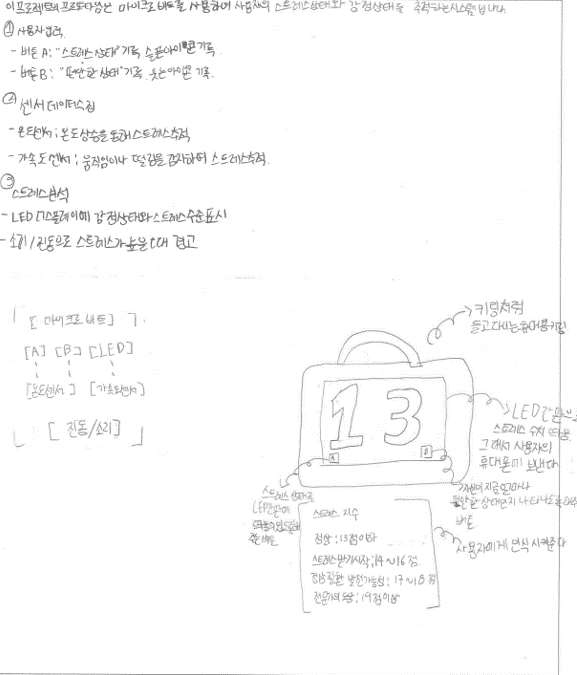 이 프로젝트의 프로토타입은 마이크로비트를 사용하여 사용자의 스트레스상태와 감정상태를 추적하는시스템입니다.
① 사용자입력
- 버튼 A: "스트레스 상태" 기록, 슬픈아이콘 기록
- 버튼 B: "편안한 상태" 기록, 웃는아이콘 기록.
② 센서 데이터수집
- 온도센서 ; 온도상승을 통해 스트레스추적
- 가속도센서 ; 움직임이나 떨림을 감지하여 스트레스추적.
③
스트레스분석
- LED 디스플레이에 감정상태와 스트레스수준표시
- 소리/진동으로 스트레스가 높을 때 경고
[ 마이크로비트]
[A] [B] [LED]
[온도센서] [가속도센서]
[ 진동/소리]
키링처럼
들고다니는 휴대용키링
13
A
B
LED 간판으로
스트레스 수치
그래서 사용자의
휴대폰에 보낸다
스트레스
버튼
버튼
사용자에게 인식시켜준다
스트레스 지수
정상 ; 13점이하
스트레스받기시작 ; 14~16점
정신질환 발전가능성 ; 17~18 점
전문가의 도움 ; 19점이상